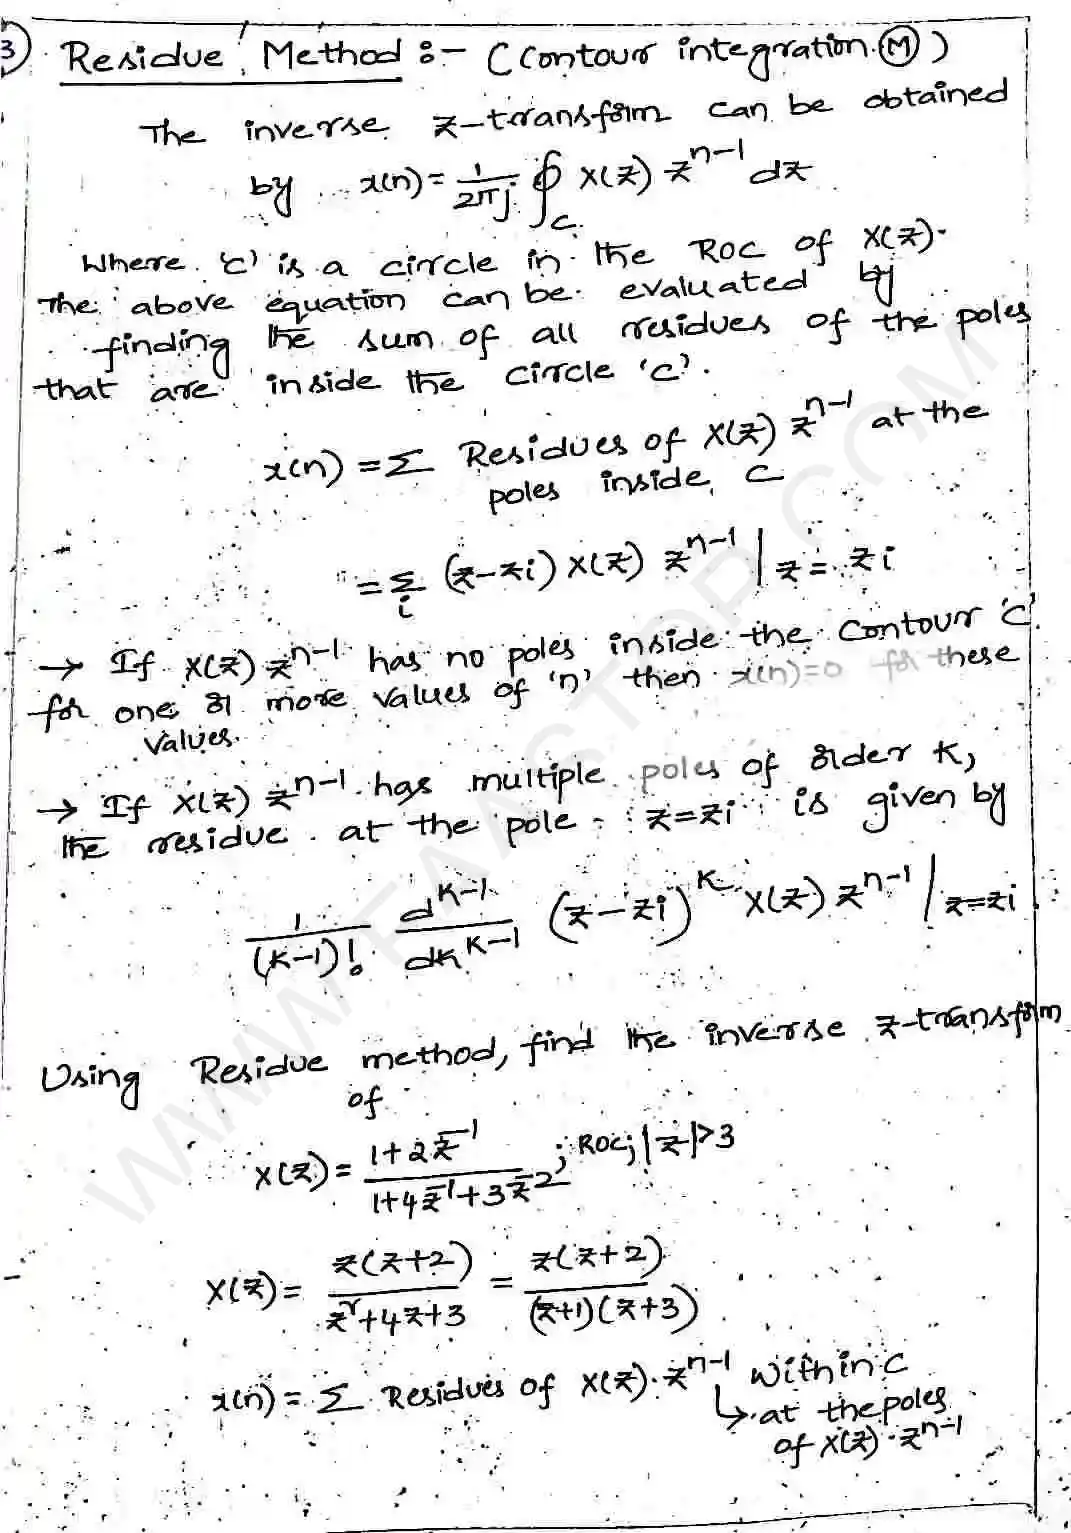 3) Residue Method :- (Contour integration (M))
The inverse z-transform can be obtained
by x(n) = 1/2πj ∮_C X(z) z^(n-1) dz
Where 'c' is a circle in the ROC of X(z).
The above equation can be evaluated by
finding the sum of all residues of the poles
that are inside the circle 'c'.
x(n) = Σ Residues of X(z) z^(n-1) at the
poles inside C
= Σ_i (z-zi) X(z) z^(n-1) | z = zi
→ If X(z) z^(n-1) has no poles inside the contour 'c'
for one or more values of 'n' then x(n)=0 for these
values.
→ If X(z) z^(n-1) has multiple poles of order K,
the residue at the pole z=zi is given by
1/(K-1)! d^(K-1)/dk^(K-1) (z-zi)^K X(z) z^(n-1) | z=zi
Using Residue method, find the inverse z-transform
of
X(z) = (1+2z^-1)/(1+4z^-1+3z^-2) ; ROC; |z|>3
X(z) = z(z+2)/(z²+4z+3) = z(z+2)/((z+1)(z+3))
x(n) = Σ Residues of X(z).z^(n-1) within C
↳ at the poles
of X(z).z^(n-1)
WWW.FAASTOP.COM